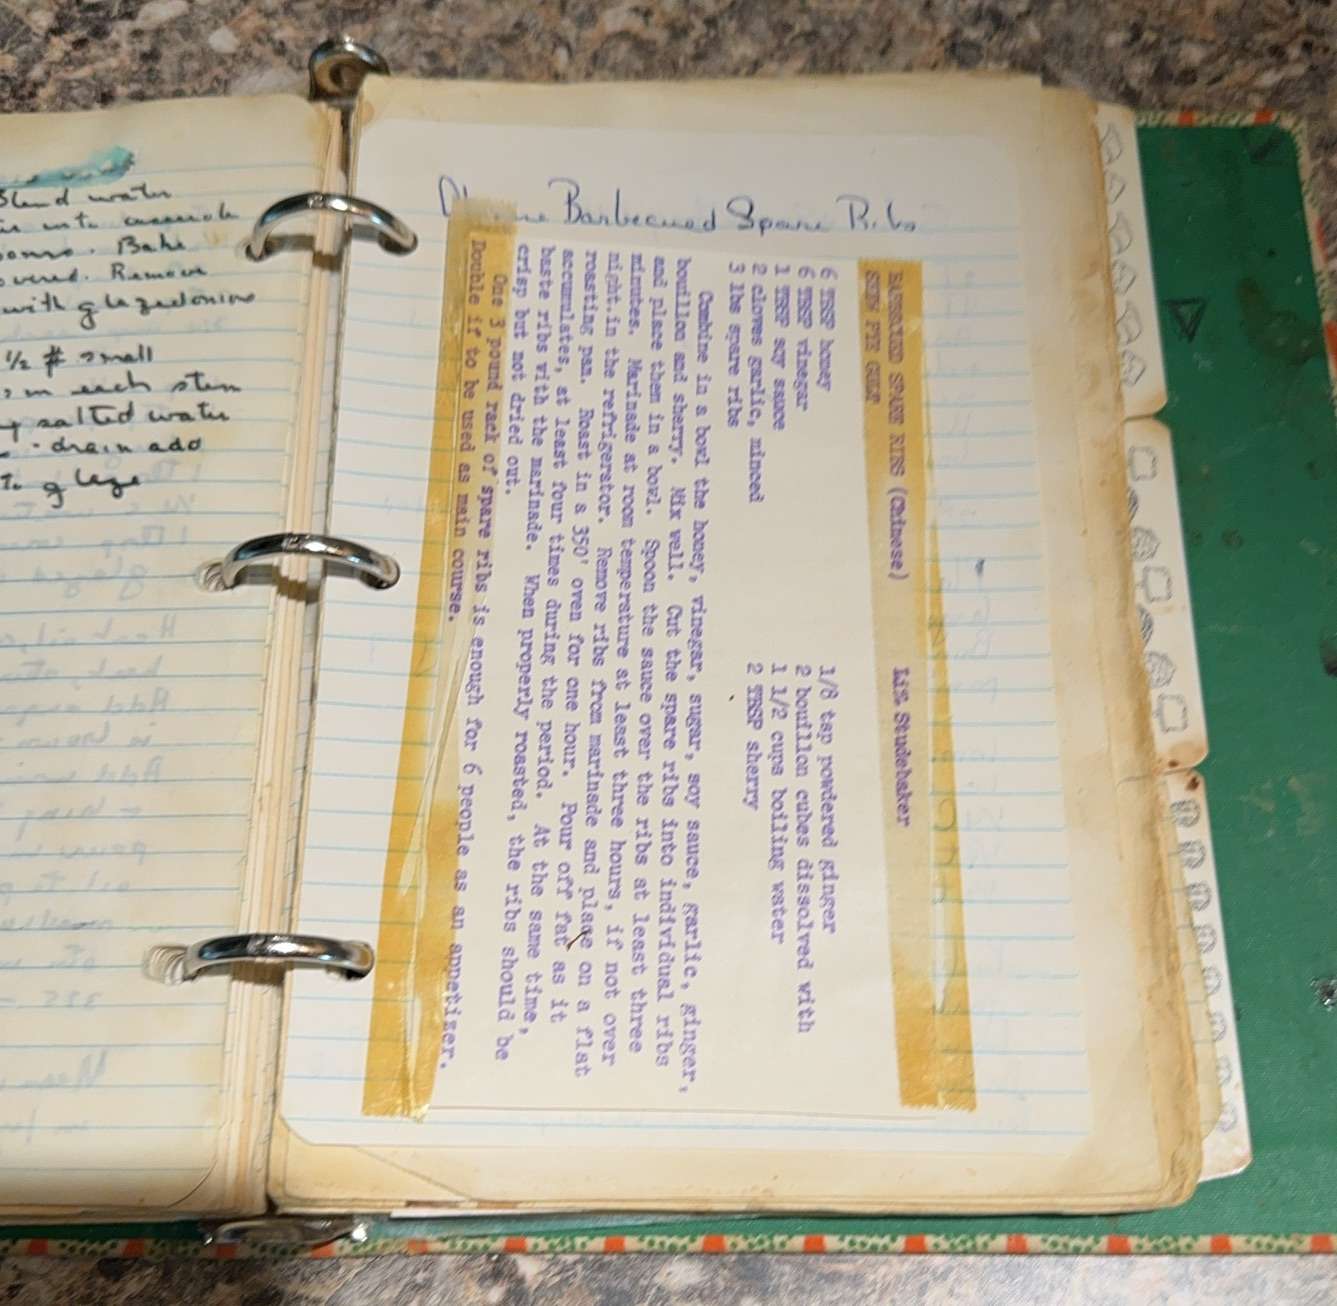 Blend water
into casserole
Bake
Remove
with glazed onions
1/2 # small
in each stem
salted water
drain add
to glaze
Barbecued Spare Ribs
BARBECUED SPARE RIBS (Chinese) Liz Studebaker
6 TBSP honey
6 TBSP vinegar
1 TBSP soy sauce
2 cloves garlic, minced
3 lbs spare ribs
1/8 tsp powdered ginger
2 bouillon cubes dissolved with
1 1/2 cups boiling water
2 TBSP sherry
Combine in a bowl the honey, vinegar, sugar, soy sauce, garlic, ginger,
bouillon and sherry. Mix well. Cut the spare ribs into individual ribs
and place them in a bowl. Spoon the sauce over the ribs at least three
minutes. Marinade at room temperature at least three hours, if not over
night.in the refrigerator. Remove ribs from marinade and place on a flat
roasting pan. Roast in a 350' oven for one hour. Pour off fat as it
accumulates, at least four times during the period. At the same time,
baste ribs with the marinade. When properly roasted, the ribs should be
crisp but not dried out.
One 3 pound rack of spare ribs is enough for 6 people as an appetizer.
Double if to be used as main course.